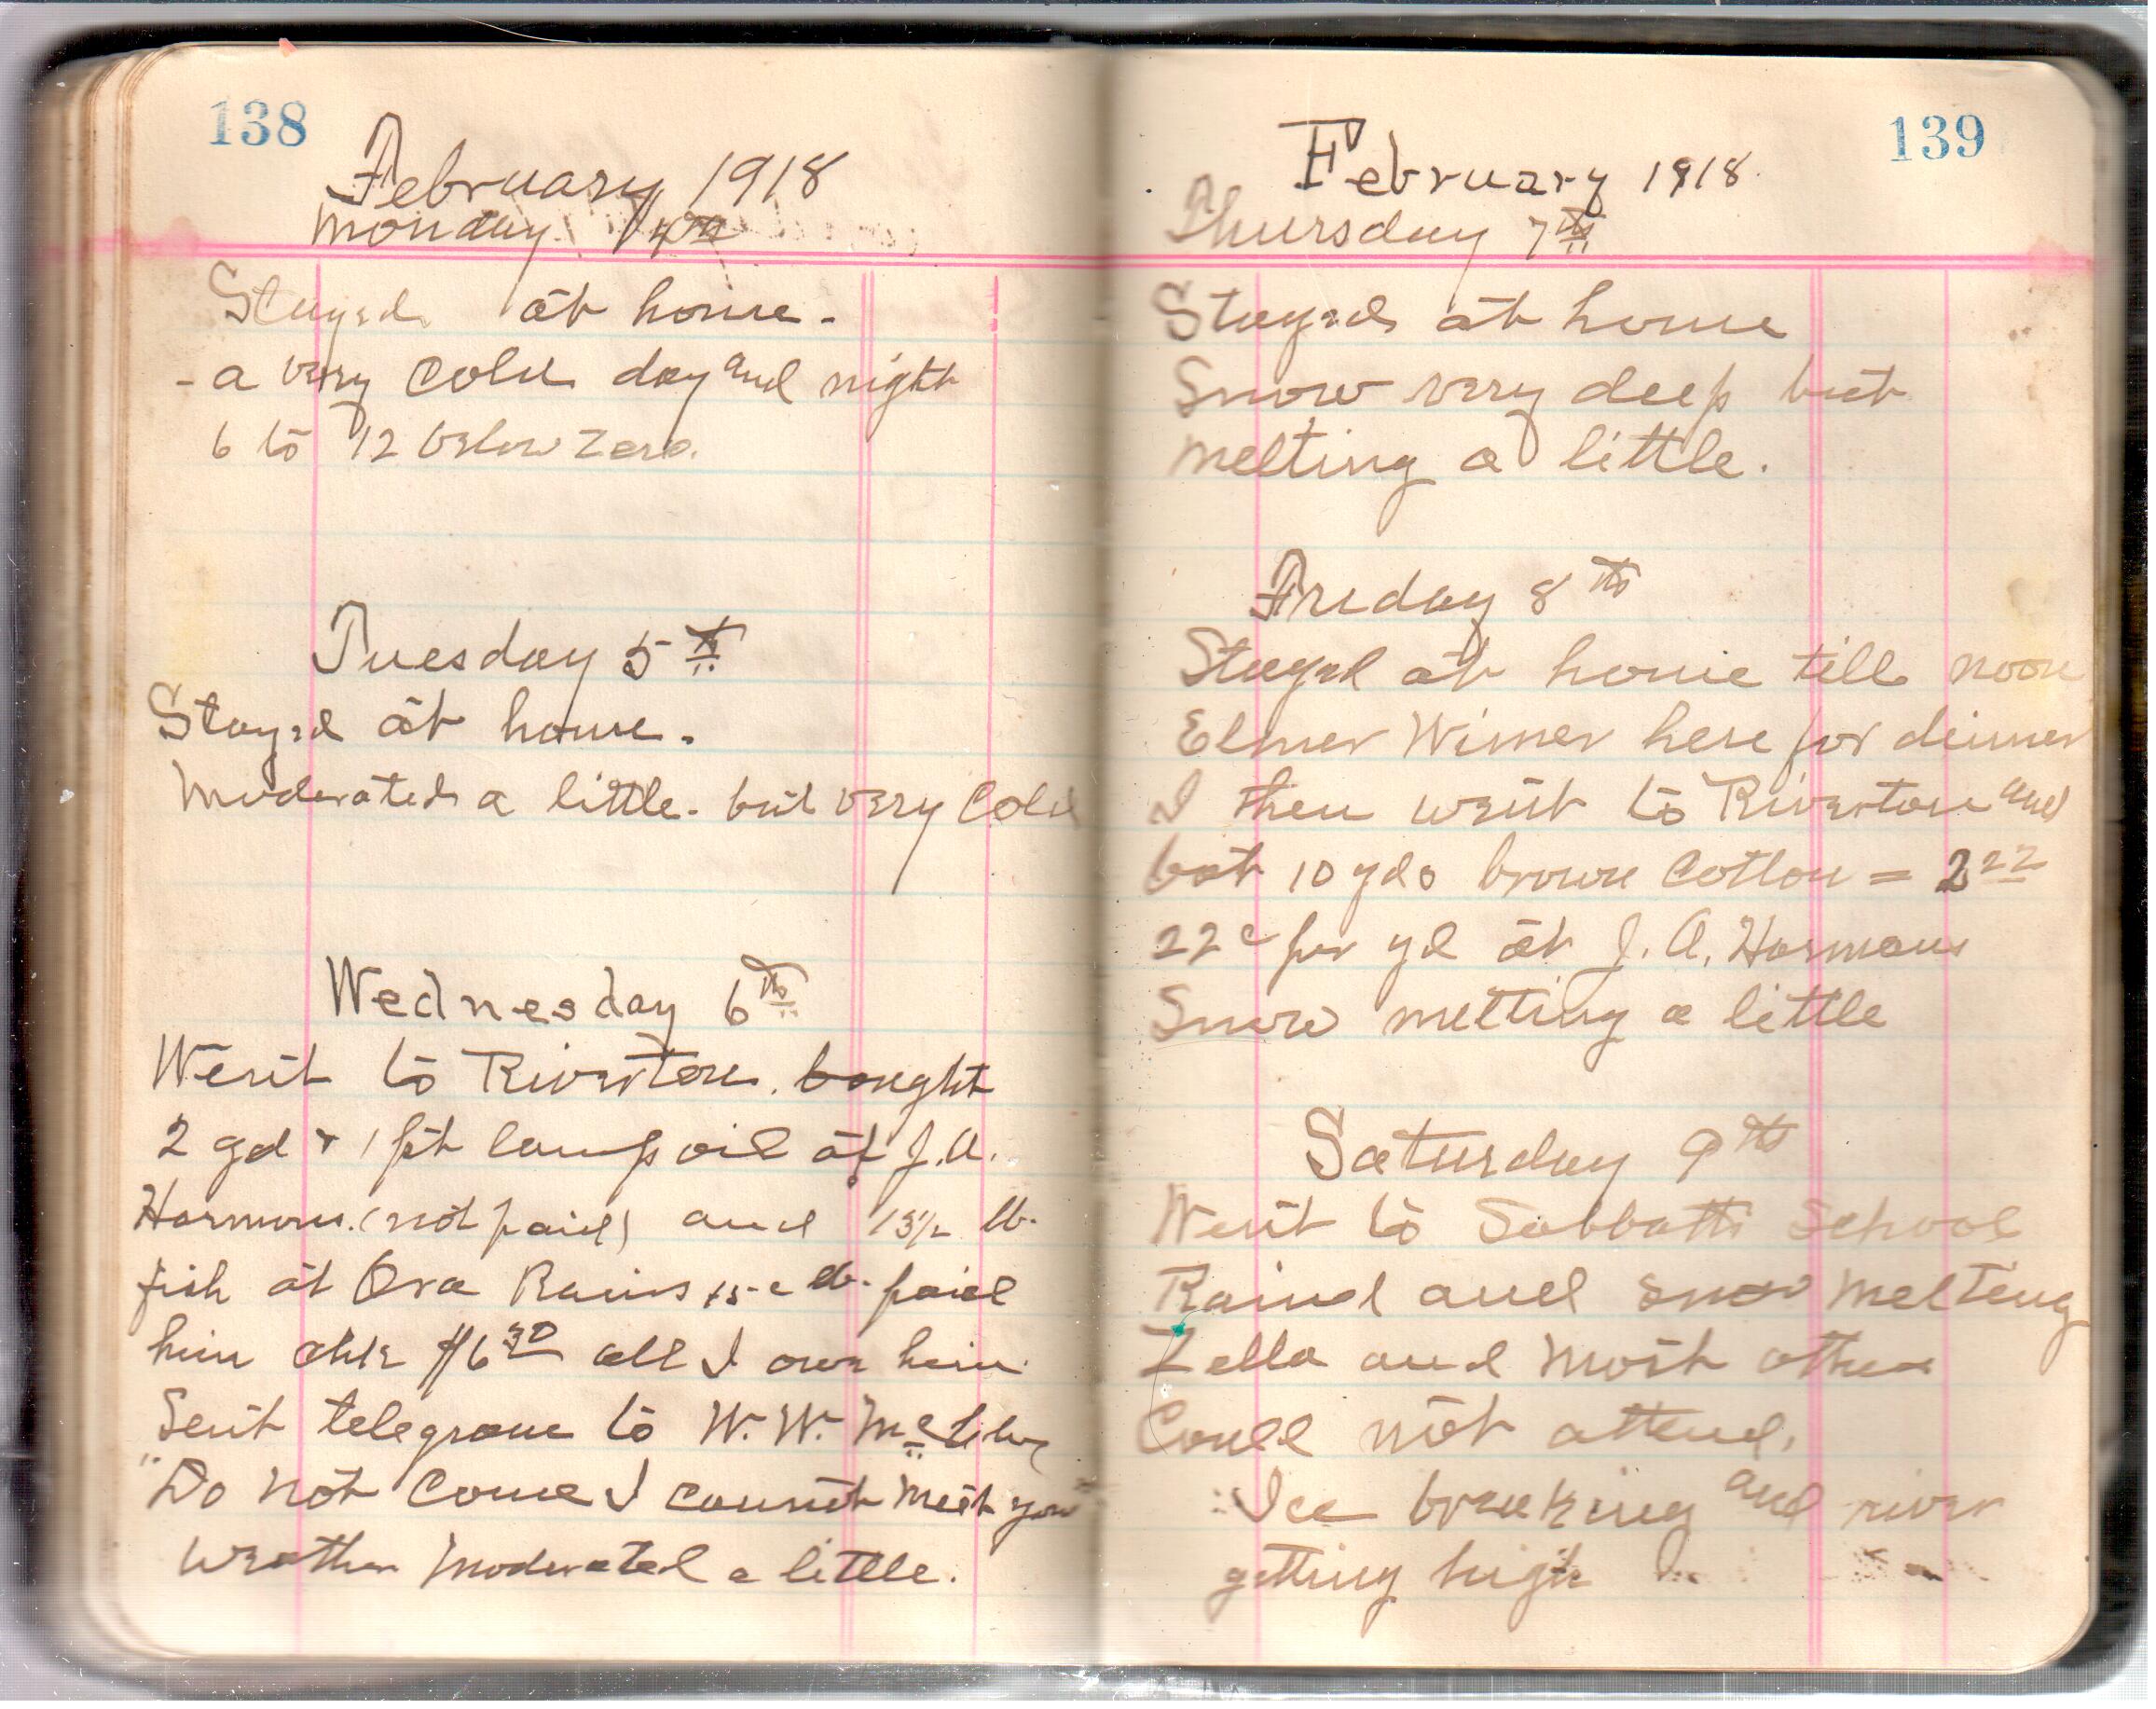 138
February 1918
Monday 4th
Stayed at home.
- a very cold day and night
6 to 12 below zero.
Tuesday 5th
Stayed at home.
Moderated a little. but very cold
Wednesday 6th
Went to Riverton. bought
2 gal & 1 pt lamp oil at J.A.
Harmons. (not paid) and 13½ lb.
fish at Ora Rains 15c lb. paid
him chk $6 30 all I owe him.
Sent telegram to W. W.
"Do not come I cannot meet you"
Weather moderated a little.
139
February 1918.
Thursday 7th
Stayed at home
Snow very deep but
melting a little.
Friday 8th
Stayed at home till noon
Elmer Wimer here for dinner
I then went to Riverton and
bot 10 yds brown cotton = 2 22
22c per yd at J. A. Harmans
Snow melting a little
Saturday 9th
Went to Sabbath School
Raind and snow melting
Zella and most others
Could not attend.
Ice breaking and river
getting high